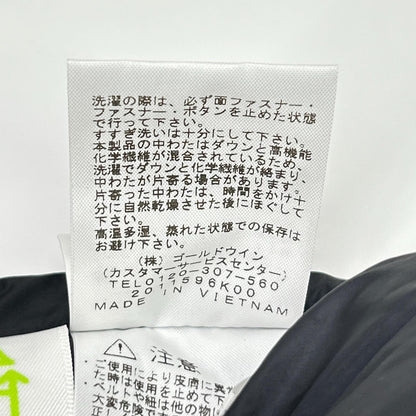 洗濯の際は、必ず面ファスナー・
ファスナー・ボタンを止めた状態
で行って下さい。
すすぎ洗いは十分にして下さい。
本製品の中わたはダウンと高機能
化学繊維が混合されているため、
洗濯でダウンと化学繊維が絡まり、
中わたが片寄る場合があります。
片寄った中わたは、時間をかけ十
分に自然乾燥させた後にほぐして
下さい。
高温多湿、蒸れた状態での保存は
お避け下さい。
(株) ゴールドウイン
(カスタマーサービスセンター)
TEL0120-307-560
11596K00
20 IN VIETNAM
MADE
注意
ご使用により皮膚に異
た時は使用を止めて下
ベルトや紐は他の物に
大変危険で